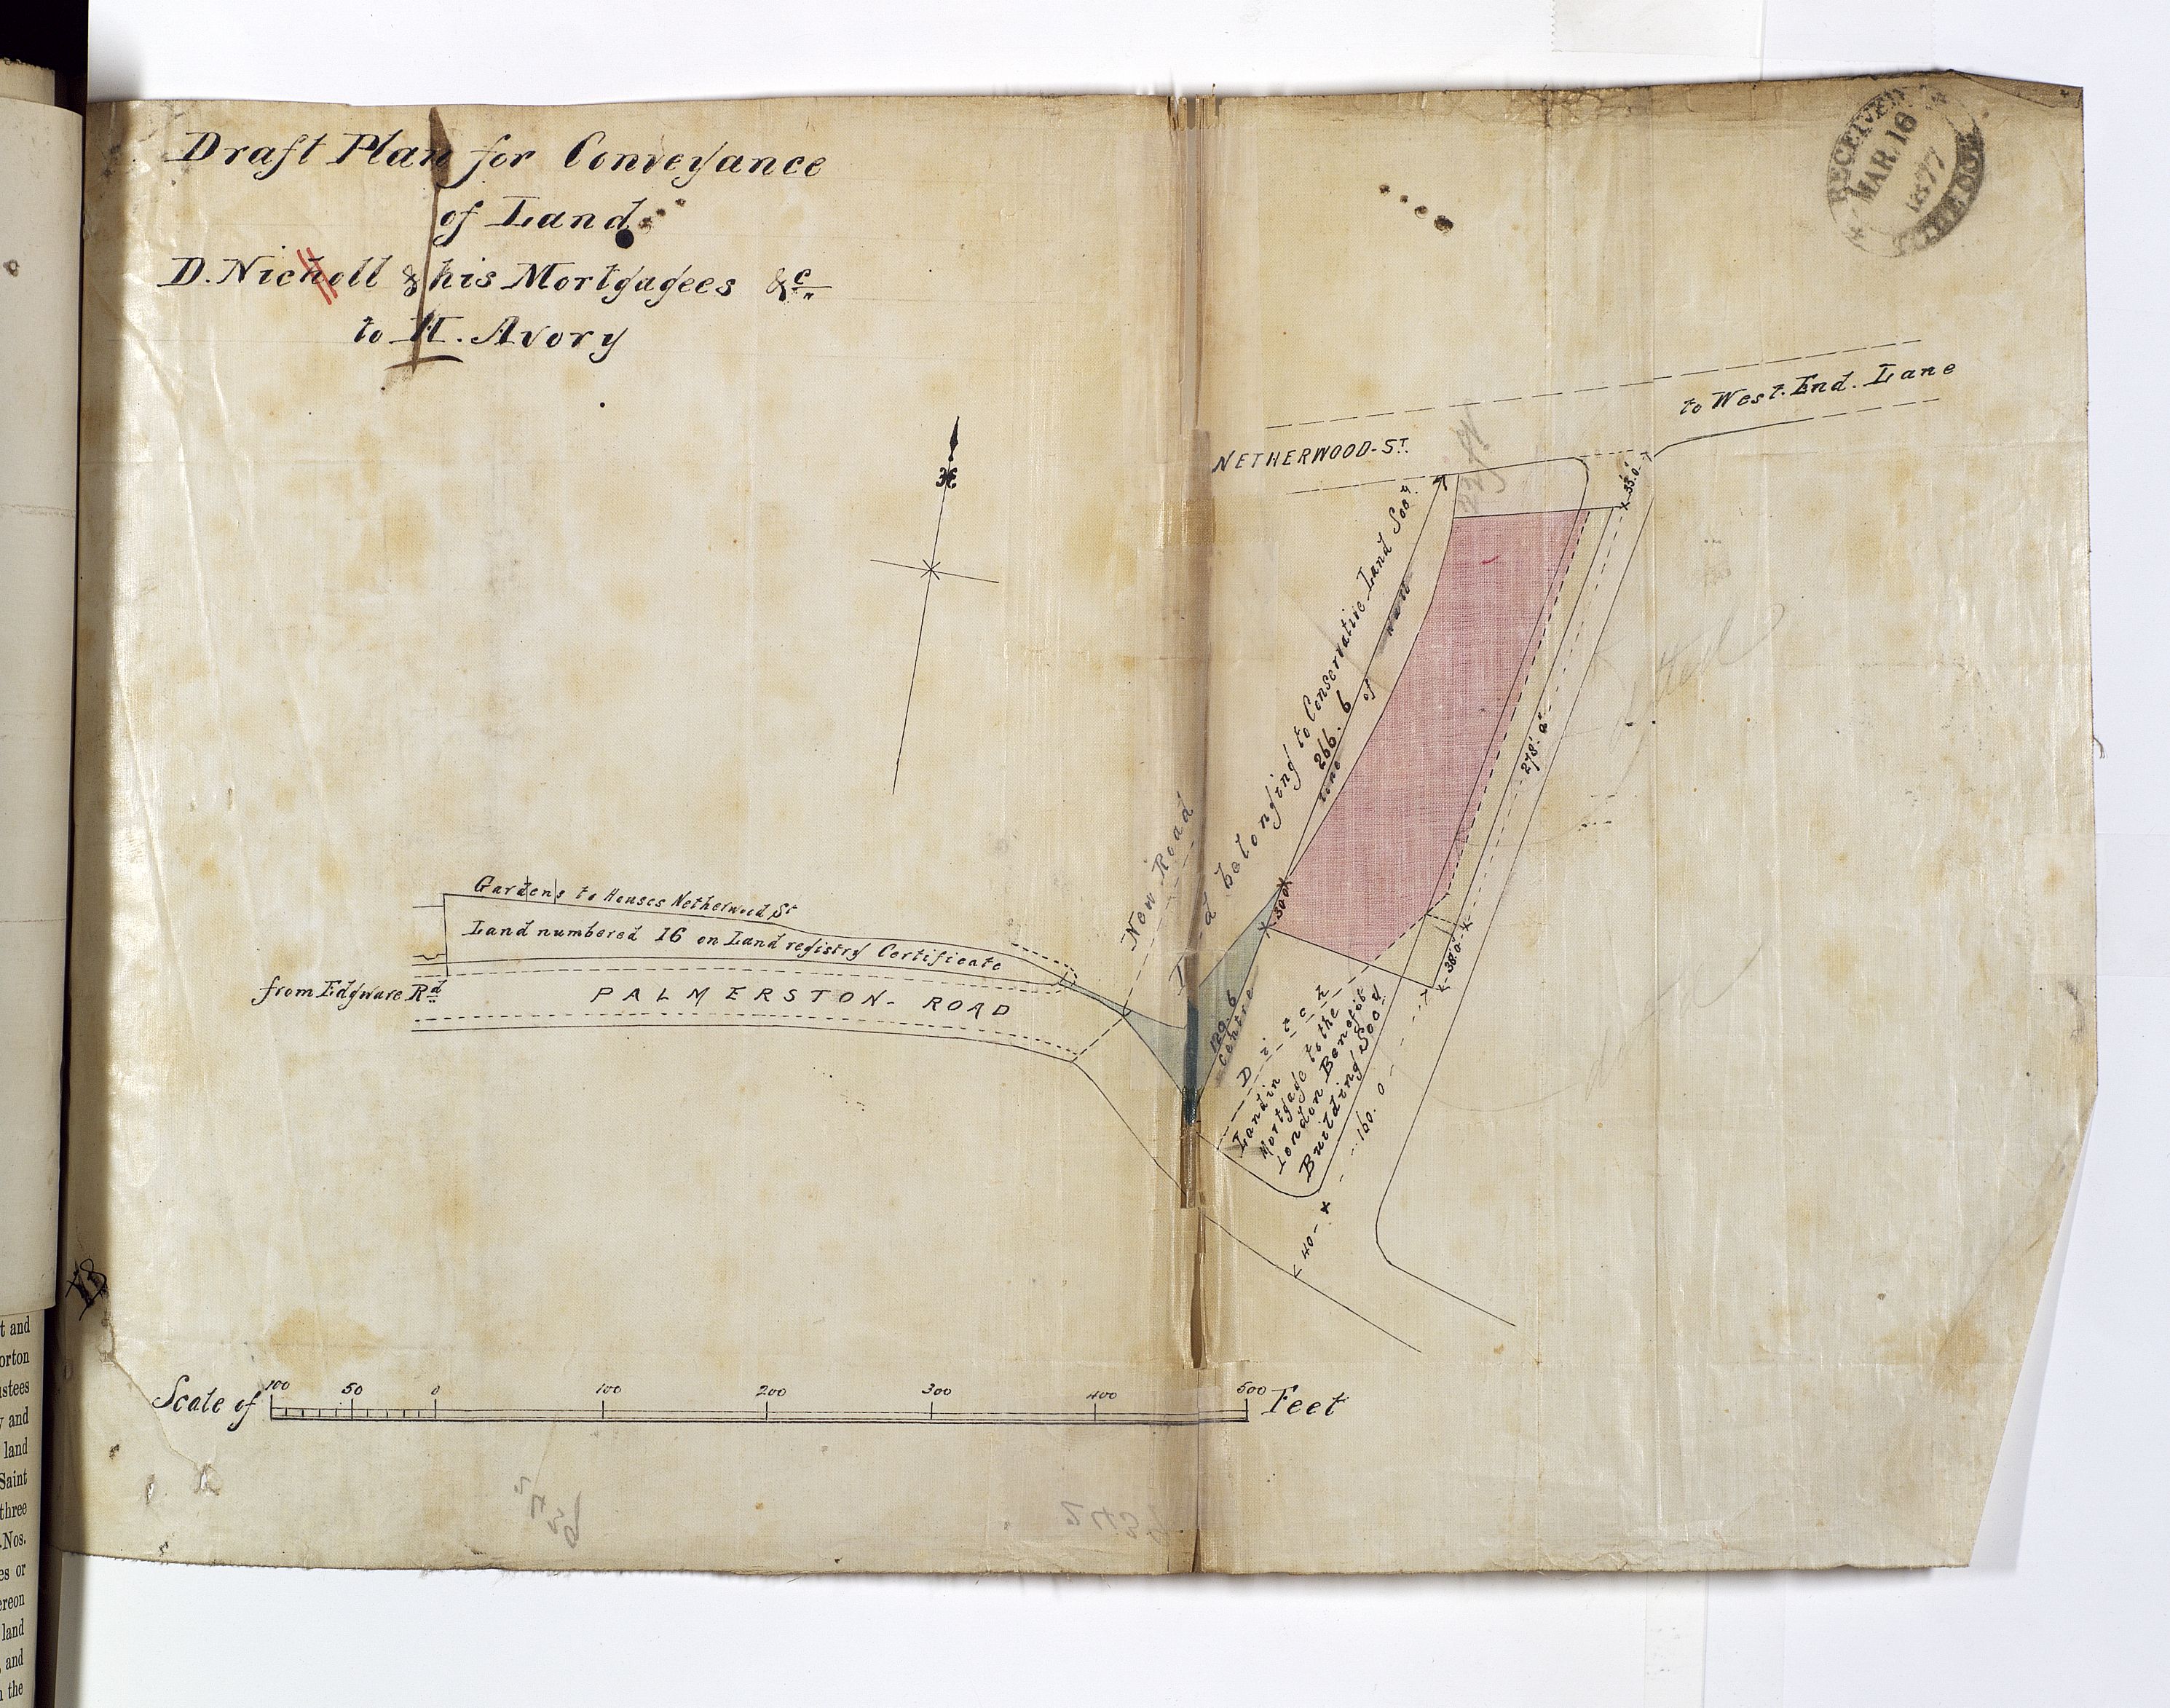 Draft Plan for Conveyance
of Land
D. Nicholl & his Mortgagees &c
to H. Avory
RECEIVED
MAR. 16
1877
to West. End. Lane
NETHERWOOD-ST.
33'.0"
Land belonging to Conservative Land Socy.
266. 6
line of wall
278'. 0"
30'0"
38.0
New Road
120. 6
centre
Ditch
Land in
Mortgage to the
London Benefit
Building Socy
160. 0
40
Gardens to Houses Netherwood St
Land numbered 16 on Land registry Certificate
from Edgware Rd.
PALMERSTON- ROAD
Scale of 100 50 0 100 200 300 400 500 Feet
t and
orton
ustees
y and
land
Saint
three
Nos.
es or
ereon
land
, and
n the